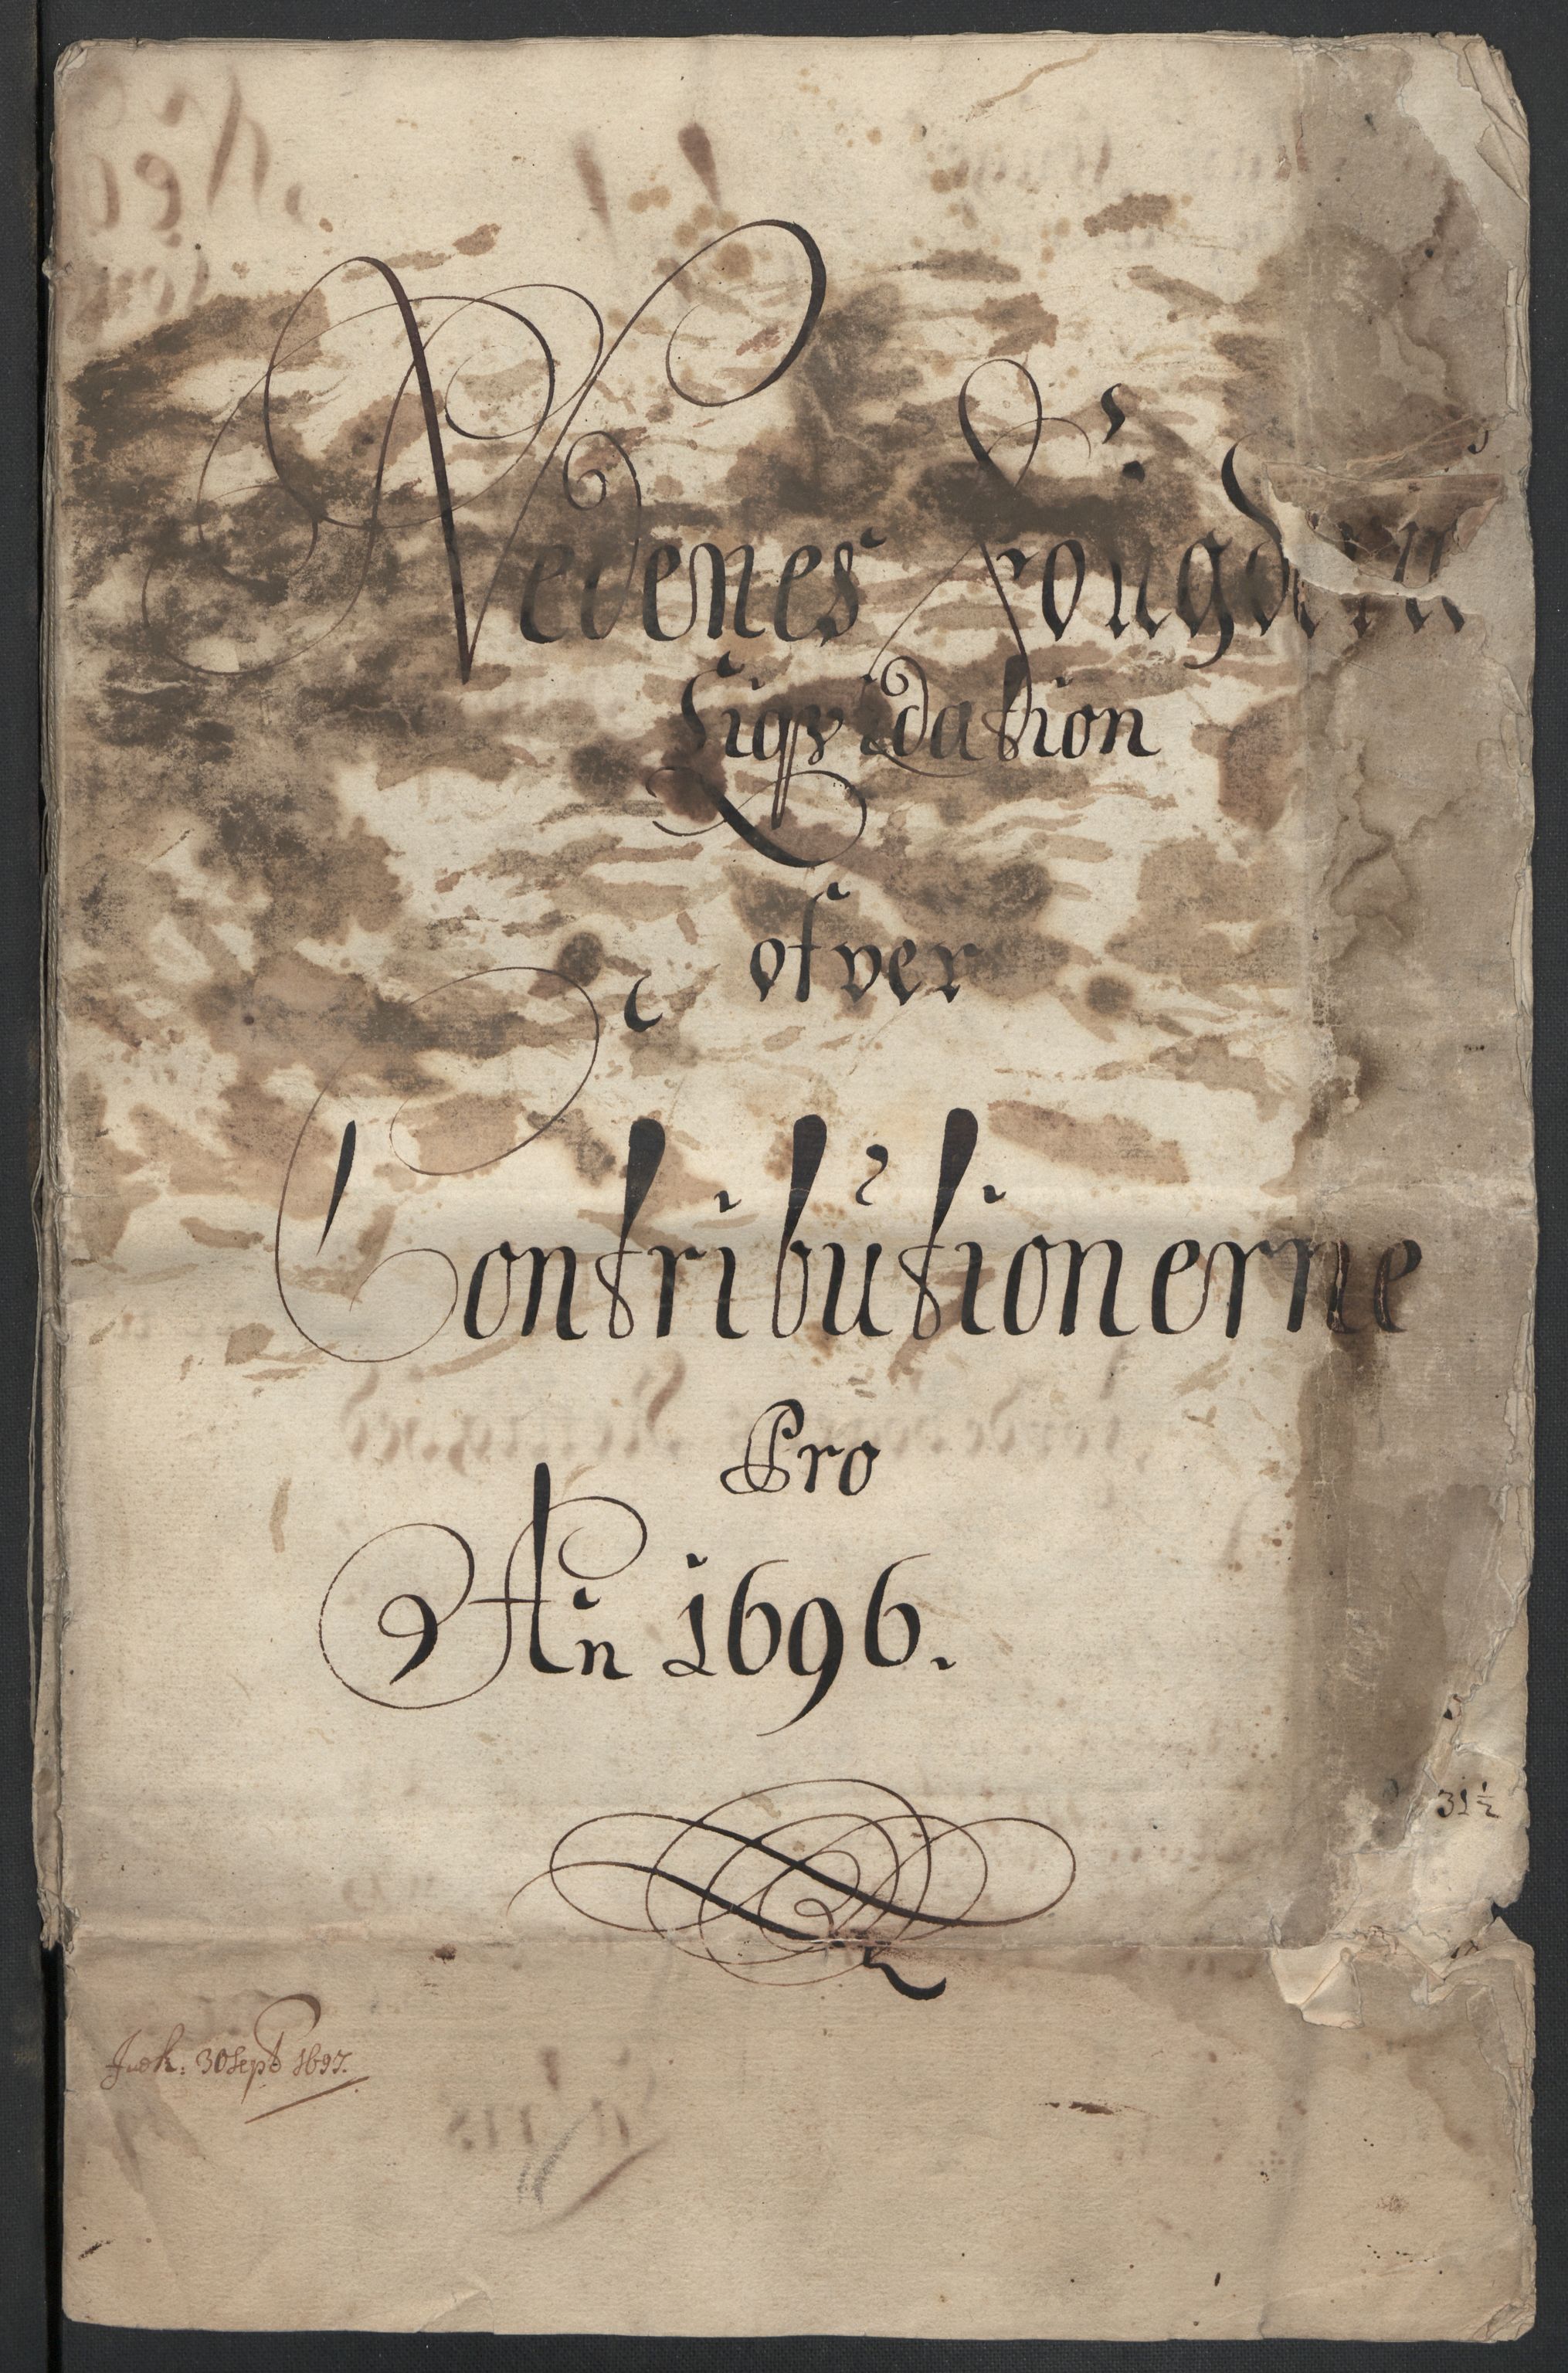 Nedenes Fougderi
Liqvidation
ofver
Contributionerne
Pro
An 1696.
31½
Indk: 30 Sept 1697.